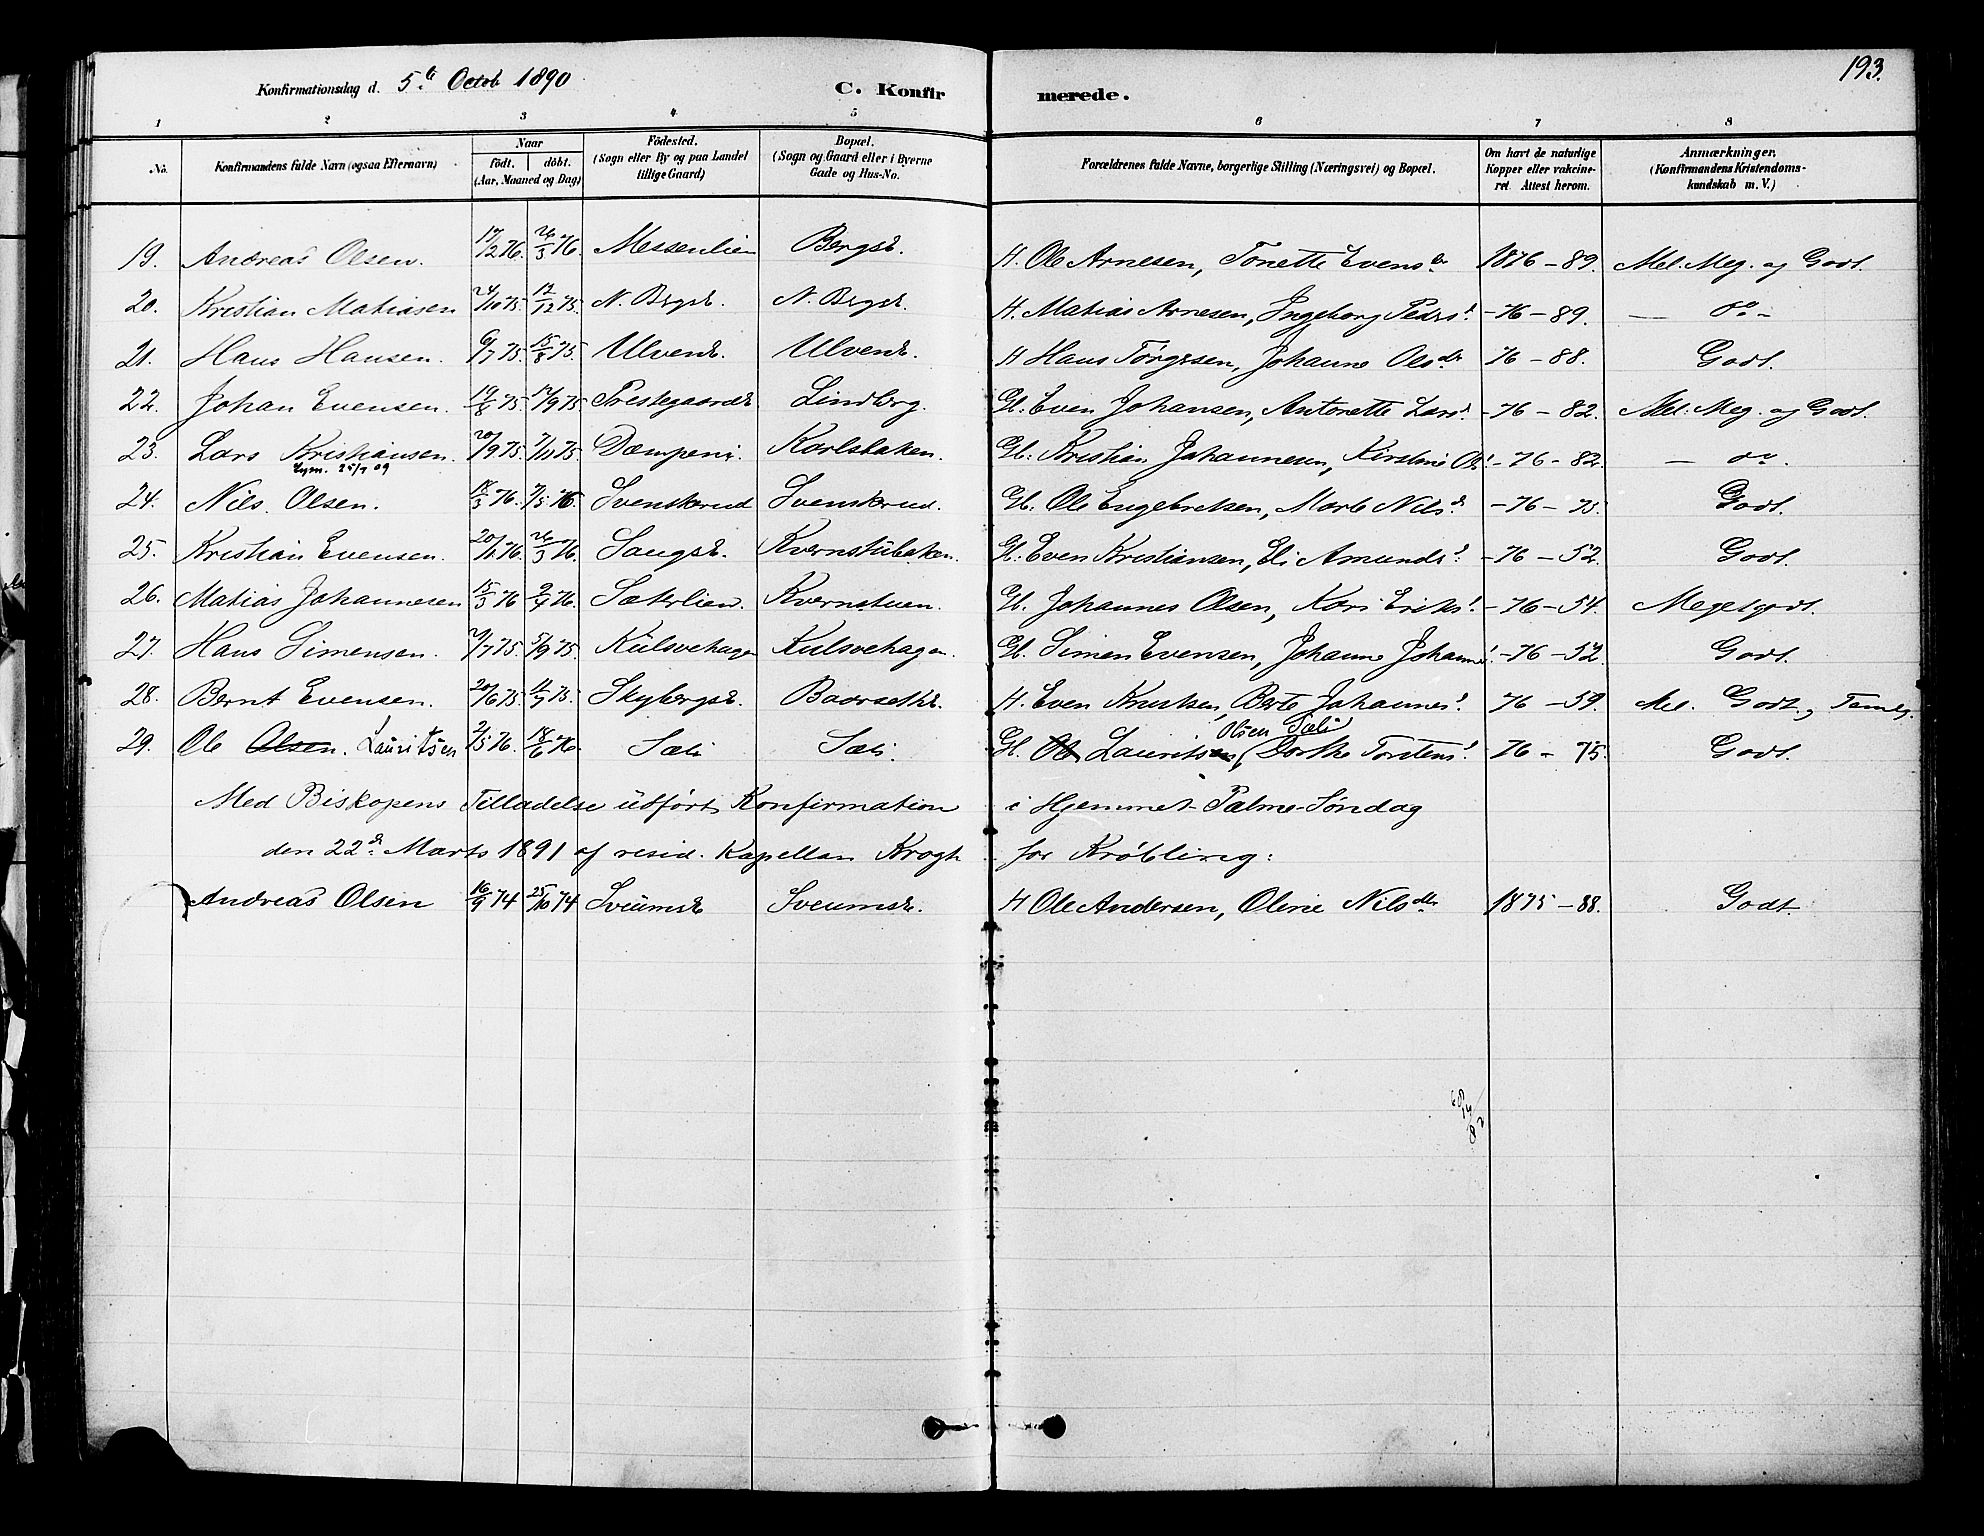 193.
Konfirmationsdag d. 5te Octob 1890 C. Konfirmerede.
1 2 3 4 5 6 7 8
No. Konfirmandens fulde Navn (ogsaa Efternavn) Naar födt. döbt. (Aar, Maaned og Dag) Födested. (Sogn eller By og paa Landet tillige Gaard) Bopæl. (Sogn og Gaard eller i Byerne Gade og Hus-No. Forældrenes fulde Navne, borgerlige Stilling (Næringsvei) og Bopæl. Om havt de naturlige Kopper eller vakcineret. Attest herom. Anmærkninger. (Konfirmandens Kristendomskundskab m. V.)
19. Andreas Olsen. 17/2 76. 26/3 76. Messenlien Bergse. H. Ole Arnesen, Tonette Evensdr 1876-89. Mel. Meg. og Godt.
20. Kristian Matiasen 24/10 75. 12/12 75. N. Bergse. N. Bergse. H. Matias Arnesen, Ingeborg Pedrsd. -76-89. — do -
21. Hans Hansen. 6/7 75. 15/8 75. Ulvene. Ulvene. H Hans Törgesen, Johanne Olsdr 76-88. Godt.
22. Johan Evensen. 19/8 75. 12/9 75 Prestegaarde Lindberg. Gl. Even Johansen, Antonette Larsd. -76-82. Mel. Meg. og Godt.
23. Lars Kristiansen. 20/9 75. 7/11 75. Dæmpeni. Karlsbaken. Gl. Kristian Johannesen, Kirstine Ols. -76-82. — do.
25/9 09
24. Nils. Olsen. 18/3 76. 7/5 76. Svenskerud Svenskerud. Gl. Ole Engebretsen, Marte Nilsd. -76-75. Godt.
25. Kristian Evensen. 20/1 76. 26/3 76. Saugse. Kvernstubaken. Gl. Even Kristiansen, Eli Amundsd. -76-52. Godt.
26. Matias Johannesen 15/3 76 9/4 76. Sæterlien. Kvernstuen. Gl. Johannes Olsen, Kari Eriksd. -76-54. Megetgodt.
27. Hans Simensen. 29/7 75. 5/9 75. Kulsvehagen Kulsvehagen. Gl. Simen Evensen, Johanne Johannesd. -76-52 Godt.
28. Bernt Evensen. 20/6 75. 4/7 75. Skybergse. Baarsethe. H. Even Knutsen, Berte Johannesd. 76-59. Mel. Godt og Temlg.
29. Ole Olsen. Lauritsen 2/5 76. 18/6 76. Sæli Sæli. Gl. Ole Lauritsen, Dorthe Torstensd. 76-75. Godt.
Olsen Sæli
Med Biskopens Tilladelse udført Konfirmation i Hjemmet Palme-Söndag
den 22de Marts 1891 af resid. Kapellan Krogh for Kröbling:
Andreas Olsen 16/9 74 25/10 74 Sveumse Sveumse. H Ole Andersen, Oline Nilsdtr 1875-88. Godt.